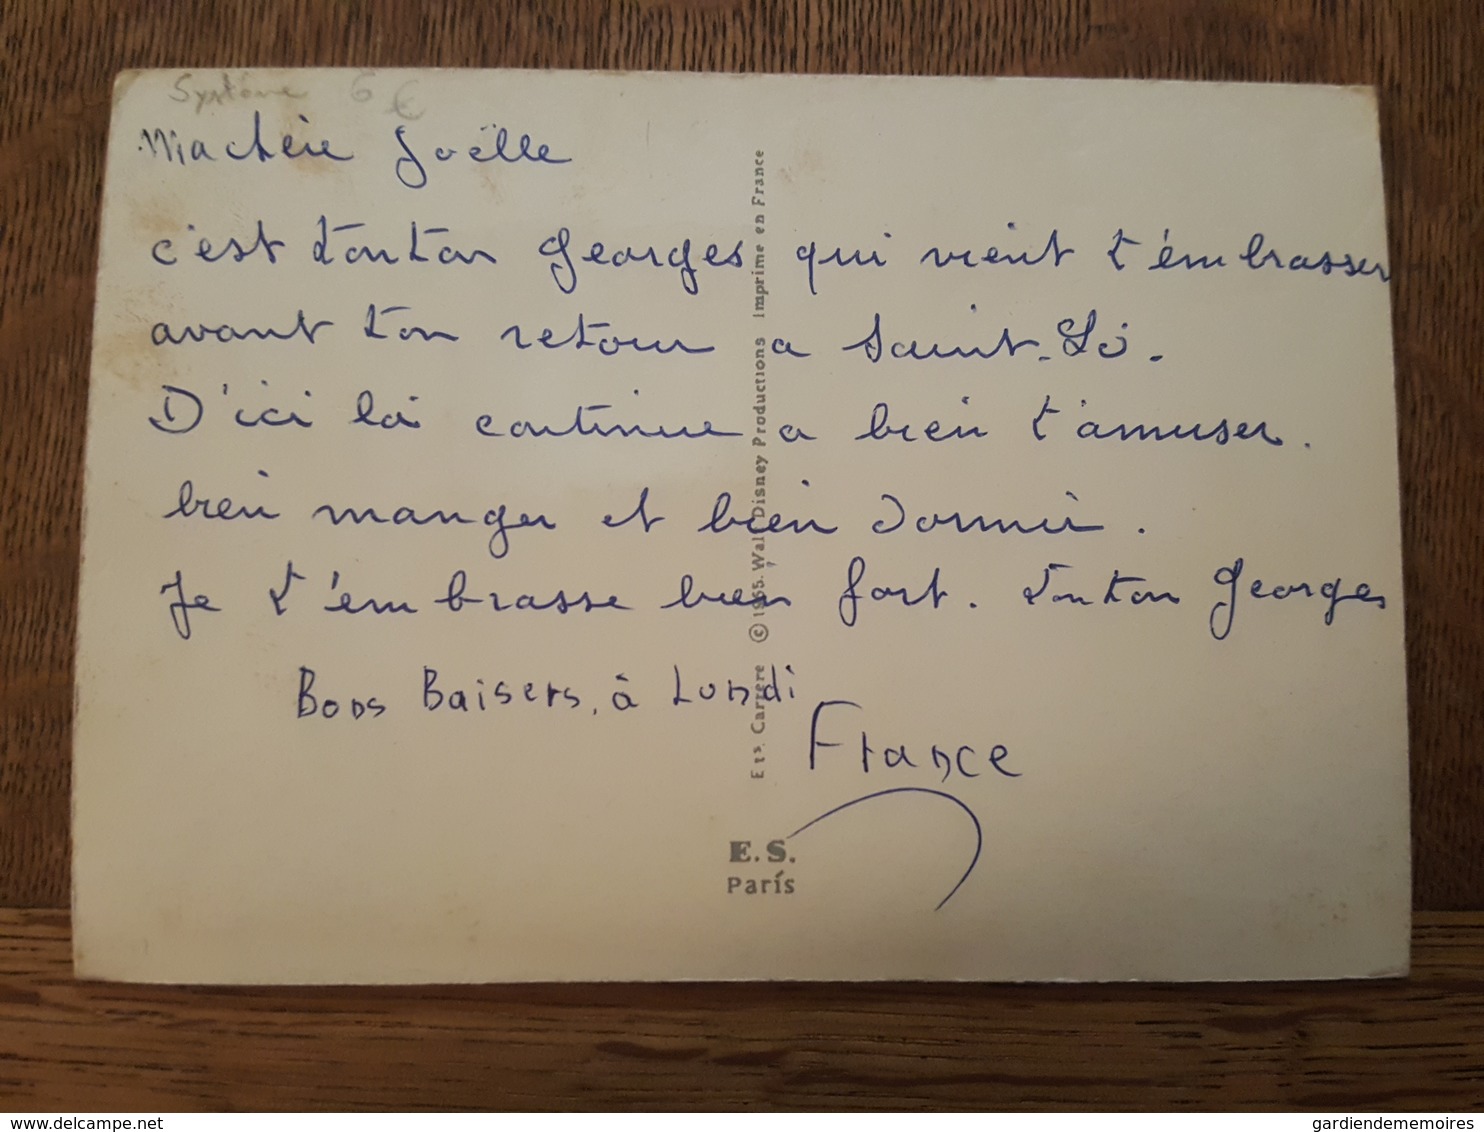 Système 6 €
Ma chère Joëlle
c'est tonton Georges qui vient t'émbrasser
avant ton retour a Saint-Lô.
D'ici là continue a bien t'amuser.
bien manger et bien dormir.
Je t'émbrasse bien fort. tonton Georges
Bons Baisers, à Lundi
France
Ets. Carrère © 1965. Walt Disney Productions Imprime en France
E. S.
París
delcampe.net
gardiendememoires